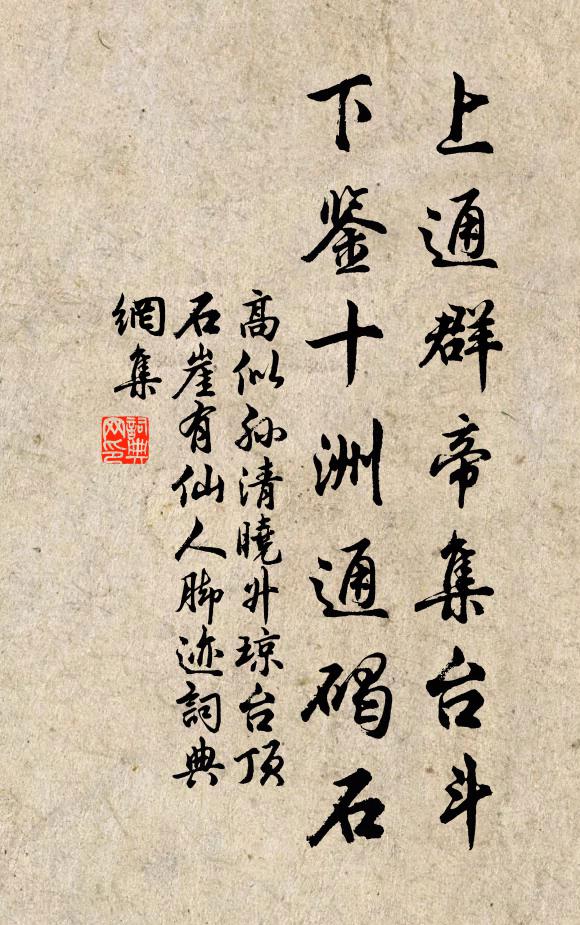 上通群帝集台斗
下鉴十洲通碣石
高似孙清曉升琼台顶
石崖有仙人脚迹詞典
網集
詞典
网印